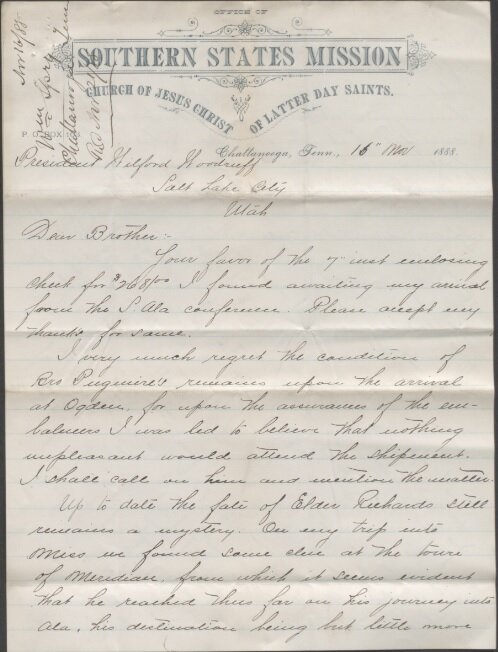 OFFICE OF
SOUTHERN STATES MISSION
CHURCH OF JESUS CHRIST OF LATTER DAY SAINTS.
Nov 16/88
Wm Spry
Chattanooga Tenn
Rec Nov
P. O. BOX
Chattanooga, Tenn., 16" Nov 1888.
President Wilford Woodruff
Salt Lake City
Utah
Dear Brother:-
Your favor of the 7" inst enclosing
check for $268/00 I found awaiting my arrival
from the S Ala conference. Please accept my
thanks for same.
I very much regret the condition of
Bro remains upon the arrival
at Ogden, for upon the assurances of the em-
balmers I was led to believe that nothing
unpleasant would attend the shipment.
I shall call on him and mention the matter.
Up to date the fate of Elder Richards still
remains a mystery. On my trip into
Miss we found some clue at the town
of Meridian, from which it seems evident
that he reached thus far on his journey into
Ala, his destination being but little more